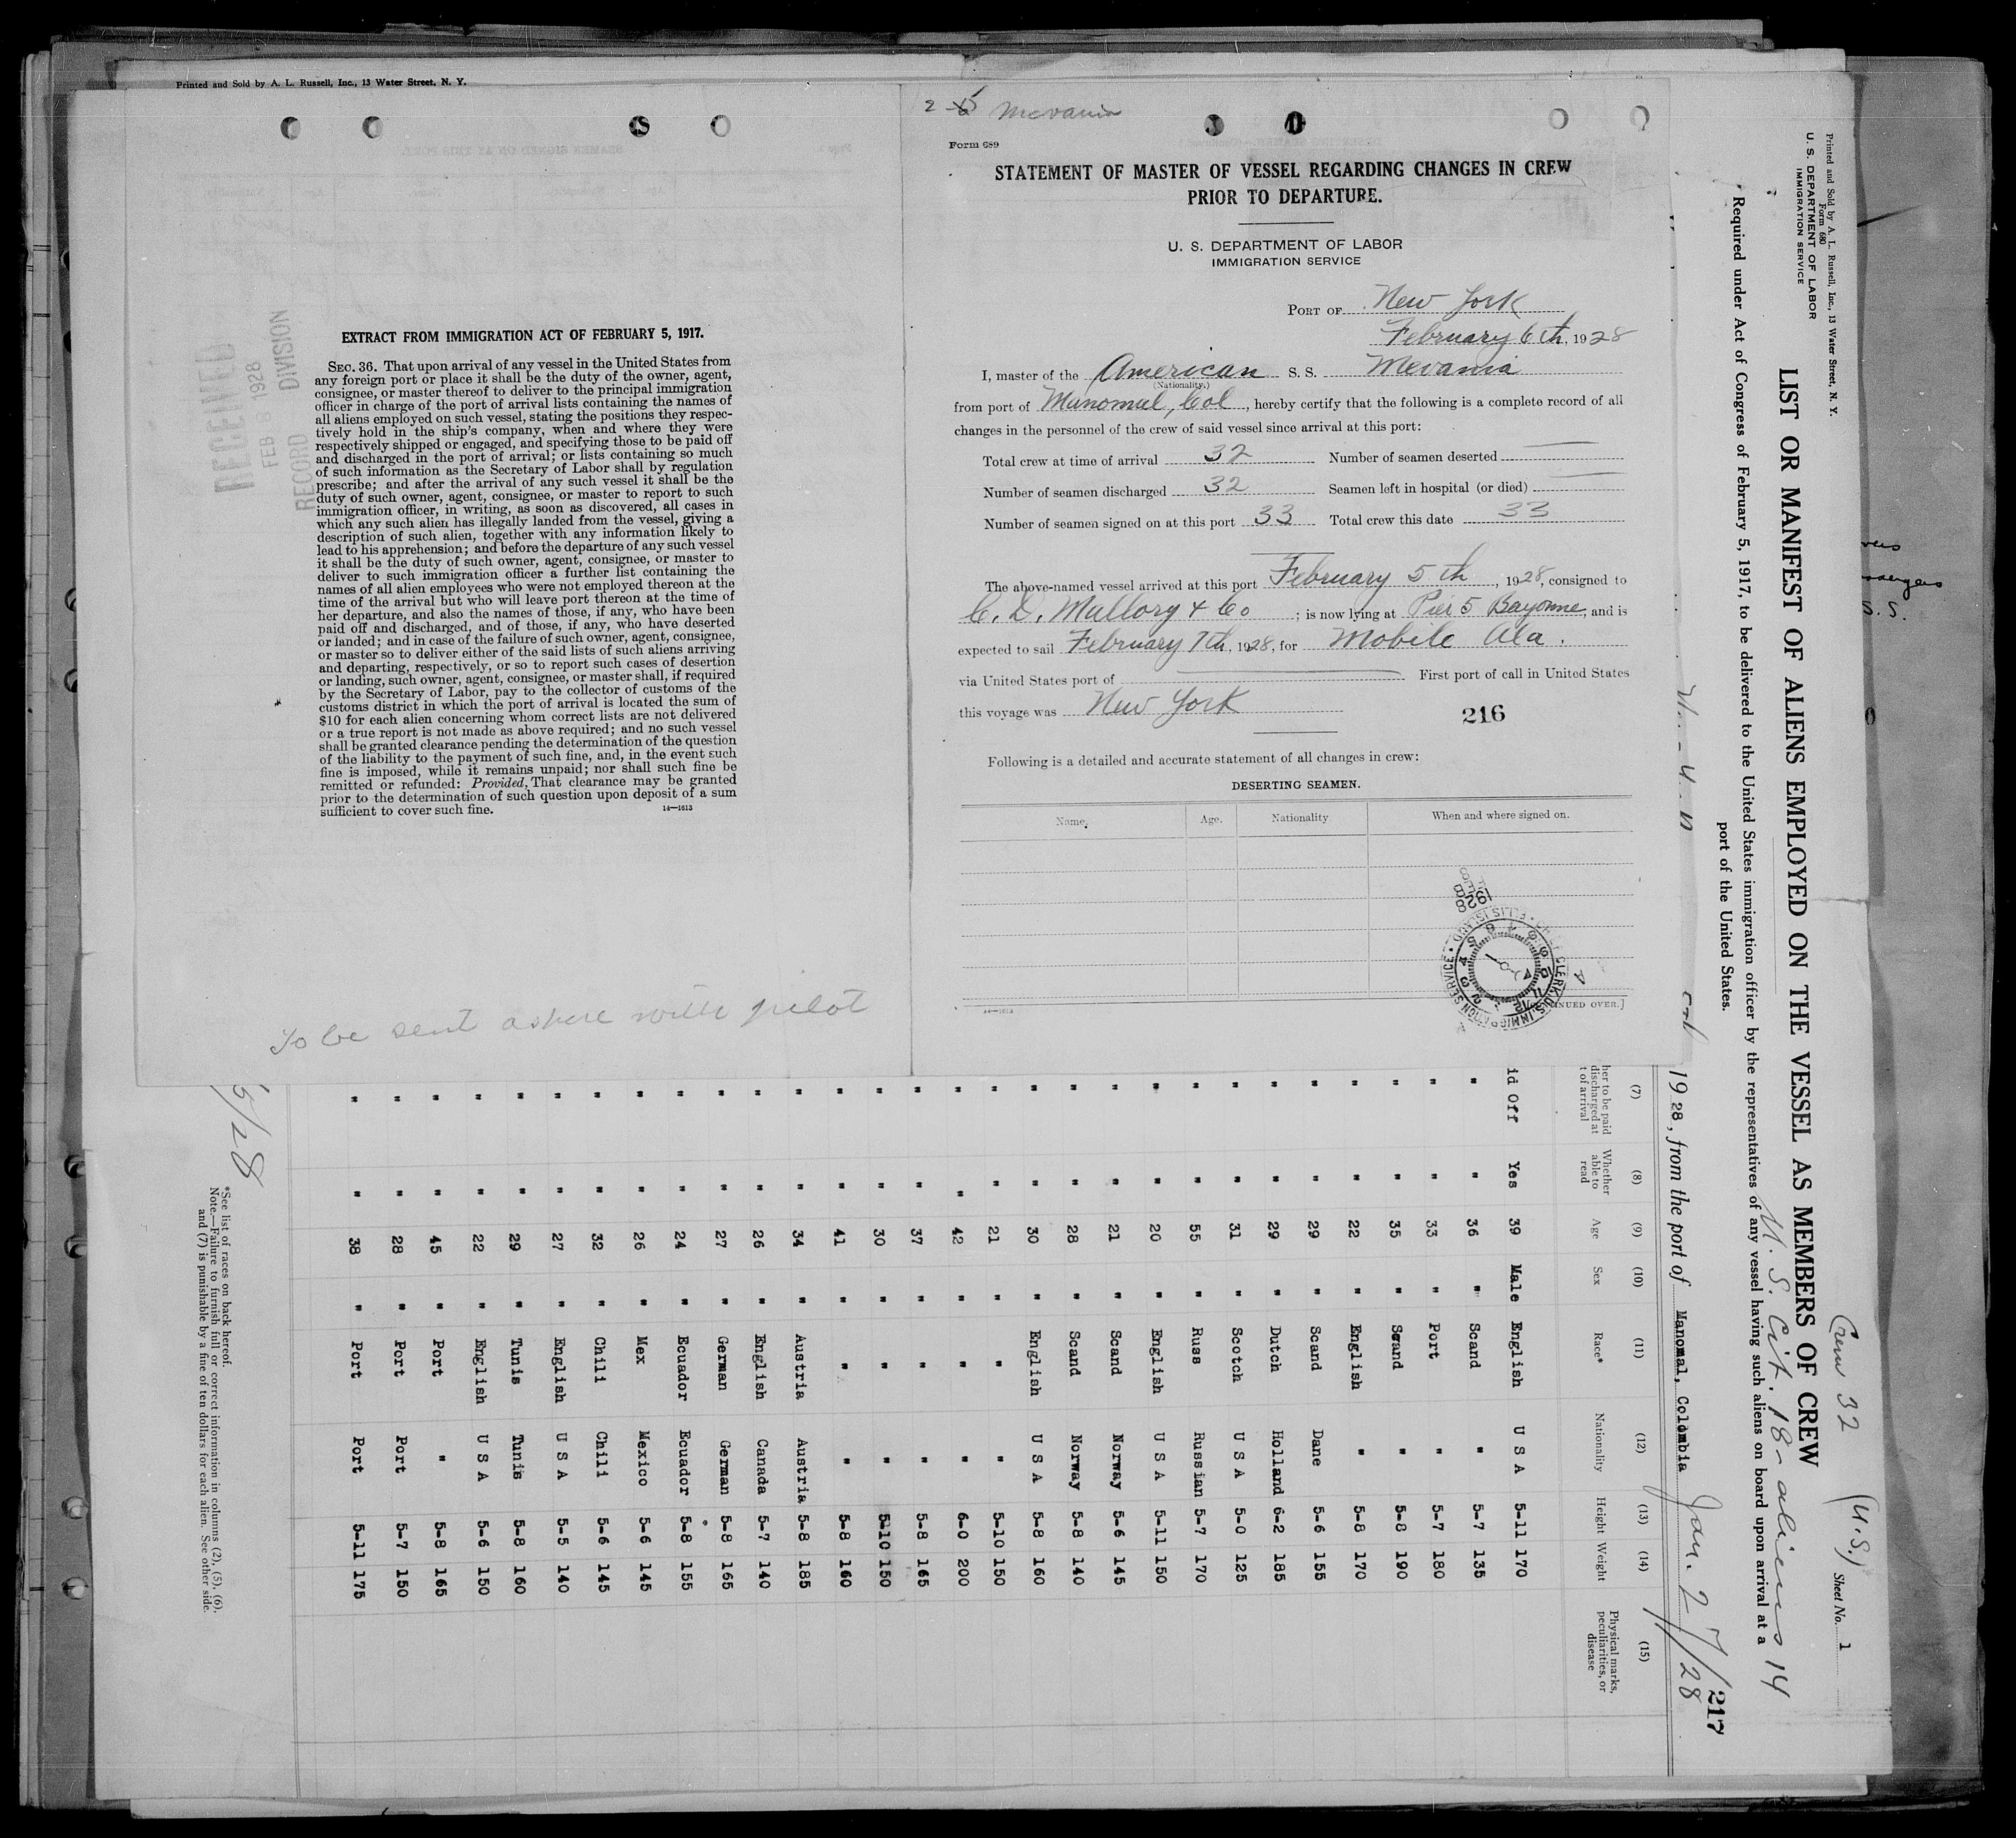 Printed and Sold by A. L. Russell, Inc., 13 Water Street, N. Y.
EXTRACT FROM IMMIGRATION ACT OF FEBRUARY 5, 1917.
SEC. 36. That upon arrival of any vessel in the United States from
any foreign port or place it shall be the duty of the owner, agent,
consignee, or master thereof to deliver to the principal immigration
officer in charge of the port of arrival lists containing the names of
all aliens employed on such vessel, stating the positions they respec-
tively hold in the ship's company, when and where they were
respectively shipped or engaged, and specifying those to be paid off
and discharged in the port of arrival; or lists containing so much
of such information as the Secretary of Labor shall by regulation
prescribe; and after the arrival of any such vessel it shall be the
duty of such owner, agent, consignee, or master to report to such
immigration officer, in writing, as soon as discovered, all cases in
which any such alien has illegally landed from the vessel, giving a
description of such alien, together with any information likely to
lead to his apprehension; and before the departure of any such vessel
it shall be the duty of such owner, agent, consignee, or master to
deliver to such immigration officer a further list containing the
names of all alien employees who were not employed thereon at the
time of the arrival but who will leave port thereon at the time of
her departure, and also the names of those, if any, who have been
paid off and discharged, and of those, if any, who have deserted
or landed; and in case of the failure of such owner, agent, consignee,
or master so to deliver either of the said lists of such aliens arriving
and departing, respectively, or so to report such cases of desertion
or landing, such owner, agent, consignee, or master shall, if required
by the Secretary of Labor, pay to the collector of customs of the
customs district in which the port of arrival is located the sum of
$10 for each alien concerning whom correct lists are not delivered
or a true report is not made as above required; and no such vessel
shall be granted clearance pending the determination of the question
of the liability to the payment of such fine, and, in the event such
fine is imposed, while it remains unpaid; nor shall such fine be
remitted or refunded: Provided, That clearance may be granted
prior to the determination of such question upon deposit of a sum
sufficient to cover such fine. 14—1613
RECEIVED
FEB 1928
RECORD DIVISION
To be sent ashore with pilot
Mevania
Form 689
STATEMENT OF MASTER OF VESSEL REGARDING CHANGES IN CREW
PRIOR TO DEPARTURE.
U. S. DEPARTMENT OF LABOR
IMMIGRATION SERVICE
PORT OF New York
February 6th, 1928
I, master of the American S. S. Mevania
(Nationality.)
from port of Manomal, Col, hereby certify that the following is a complete record of all
changes in the personnel of the crew of said vessel since arrival at this port:
Total crew at time of arrival 32 Number of seamen deserted
Number of seamen discharged 32 Seamen left in hospital (or died)
Number of seamen signed on at this port 33 Total crew this date 33
The above-named vessel arrived at this port February 5th, 1928, consigned to
C. D. Mallory & Co; is now lying at Pier 5 Bayonne, and is
expected to sail February 7th, 1928, for Mobile Ala.
via United States port of First port of call in United States
this voyage was New York
216
Following is a detailed and accurate statement of all changes in crew:
DESERTING SEAMEN.
Name. Age. Nationality When and where signed on.
1928
CLERK U.S. IMMIGRATION SERVICE ELLIS ISLAND
14—1613 NUED OVER.]
Printed and Sold by A. L. Russell, Inc., 13 Water Street, N. Y.
Form 680
U. S. DEPARTMENT OF LABOR
IMMIGRATION SERVICE
Crew 32 (U.S.) Sheet No. 1
LIST OR MANIFEST OF ALIENS EMPLOYED ON THE VESSEL AS MEMBERS OF CREW
U. S. Cit. 18 - aliens 14
Required under Act of Congress of February 5, 1917, to be delivered to the United States immigration officer by the representatives of any vessel having such aliens on board upon arrival at a
port of the United States.
217
1928, from the port of Manomal, Colombia Jan. 27/28
(7) (8) (9) (10) (11) (12) (13) (14) (15)
her to be paid discharged at t of arrival Whether able to read Age Sex Race* Nationality Height Weight Physical marks, peculiarities, or disease
id Off Yes 39 Male English U S A 5-11 170
" " 36 " Scand " 5-7 135
" " 33 " Port " 5-7 180
" " 35 " Scand " 5-8 190
" " 22 " English " 5-8 170
" " 29 " Scand Dane 5-6 155
" " 29 " Dutch Holland 6-2 185
" " 31 " Scotch U S A 5-0 125
" " 55 " Russ Russian 5-7 170
" " 20 " English U S A 5-11 150
" " 21 " Scand Norway 5-6 145
" " 28 " Scand Norway 5-8 140
" " 30 " English U S A 5-8 160
" " 21 " " " 5-10 150
" " 42 " " " 6-0 200
" " 37 " " " 5-8 165
" " 30 " " " 5-10 150
" " 41 " " " 5-8 160
" " 34 " Austria Austria 5-8 185
" " 26 " English Canada 5-7 140
" " 27 " German German 5-8 165
" " 24 " Ecuador Ecuador 5-8 155
" " 26 " Mex Mexico 5-6 145
" " 32 " Chili Chili 5-6 145
" " 27 " English U S A 5-5 140
" " 29 " Tunis Tunis 5-8 160
" " 22 " English U S A 5-6 150
" " 45 " Port " 5-8 165
" " 28 " Port Port 5-7 150
" " 38 " Port Port 5-11 175
5/28
*See list of races on back hereof.
Note.—Failure to furnish full or correct information in columns (2), (5), (6),
and (7) is punishable by a fine of ten dollars for each alien. See other side.